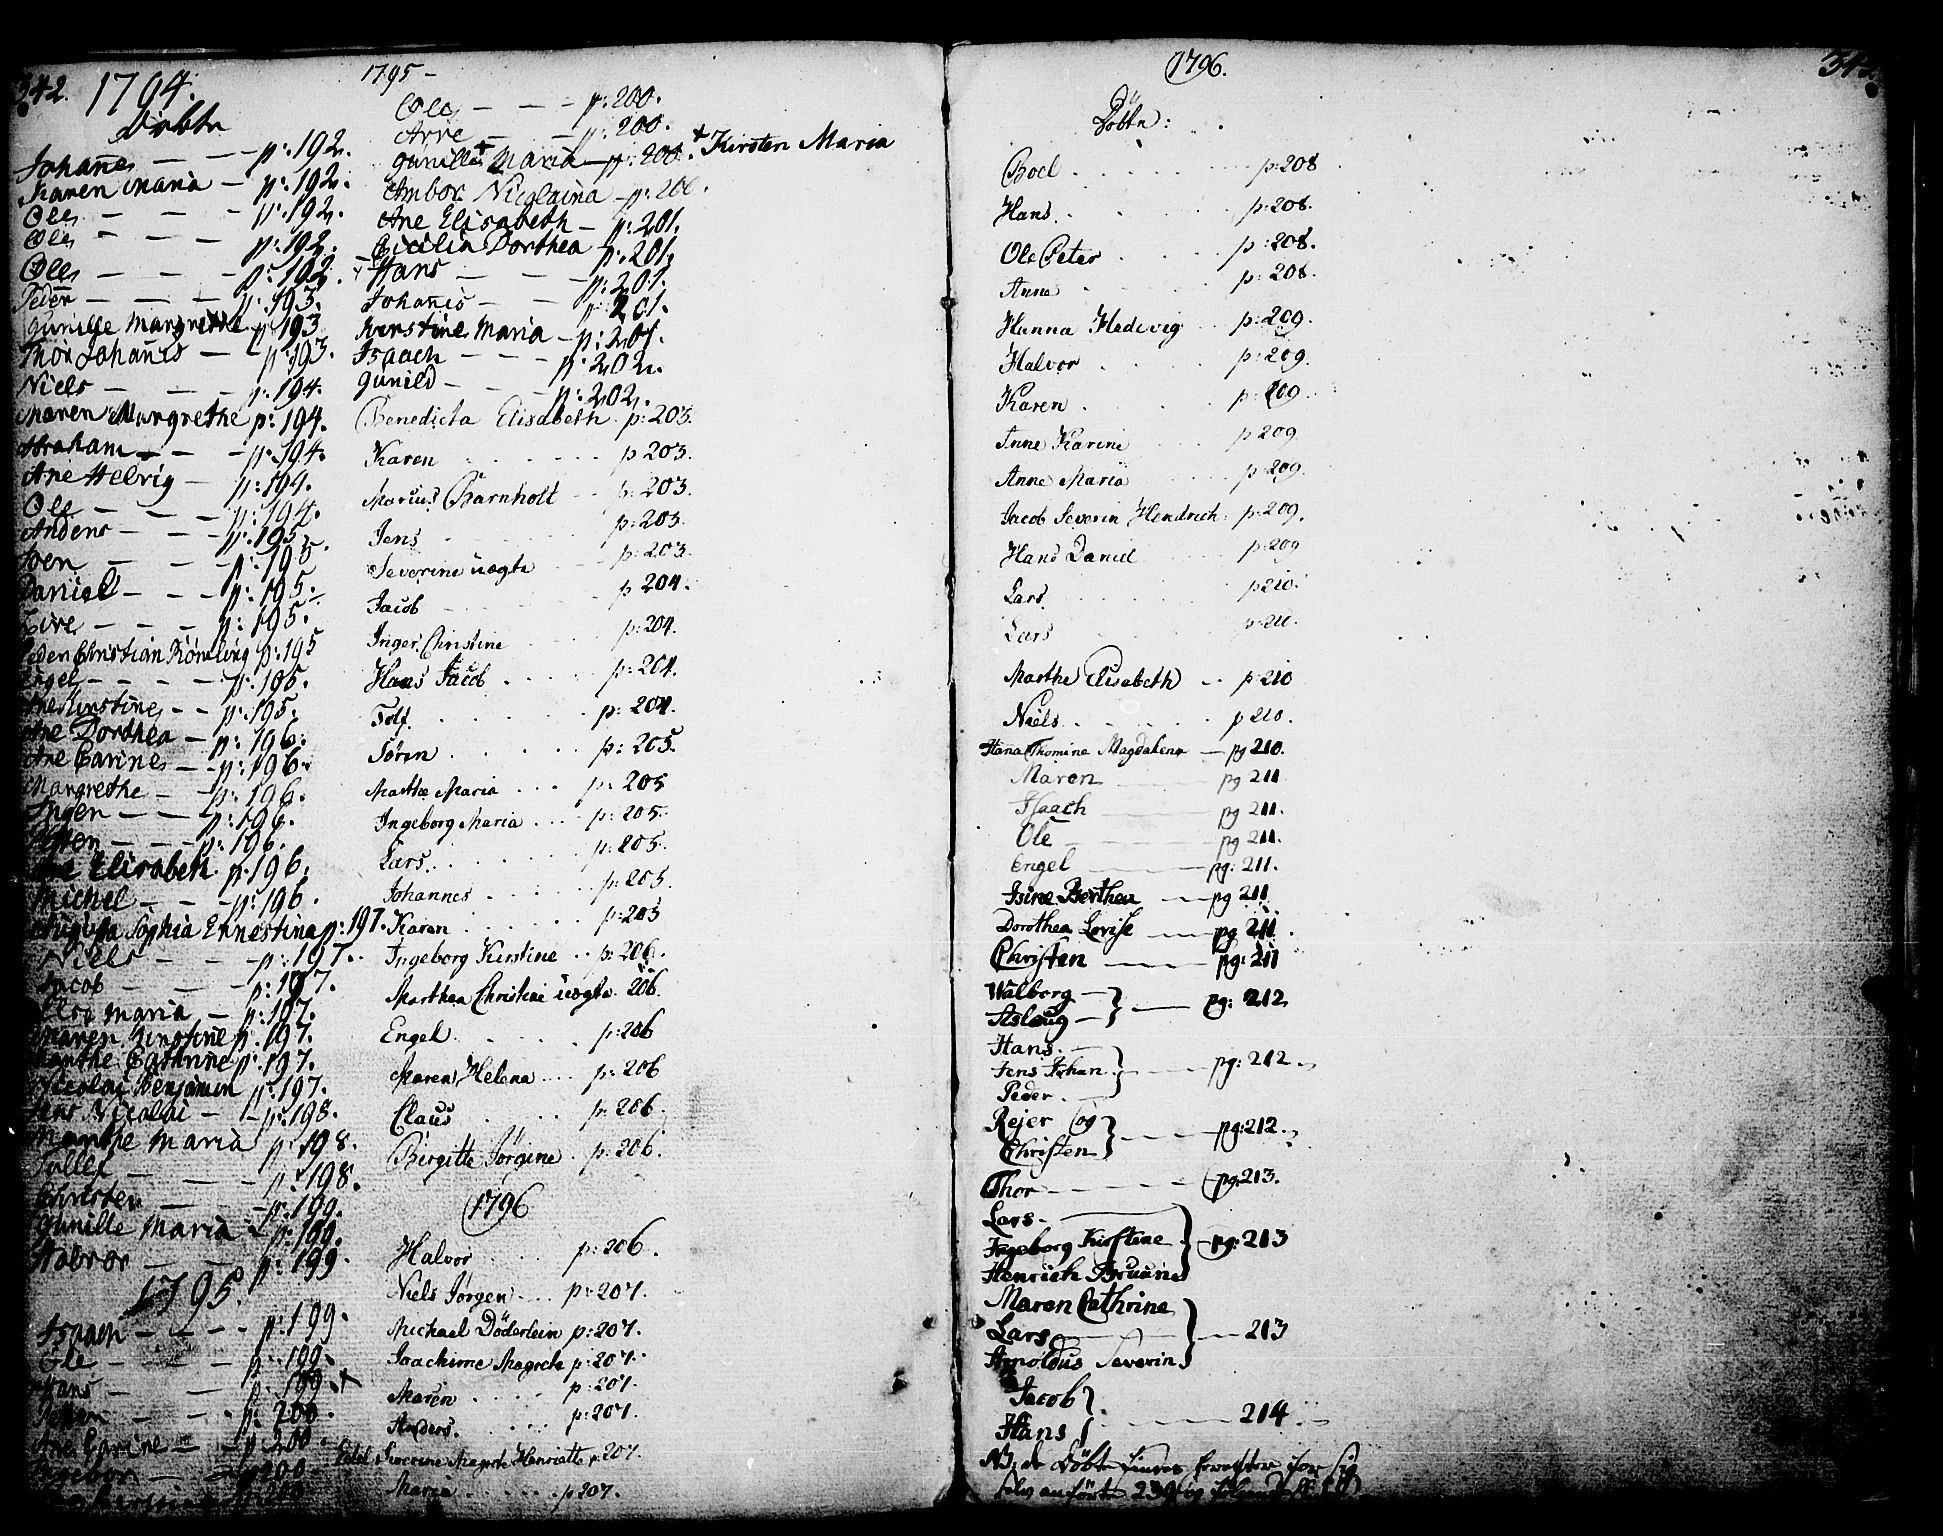 342. 1794.
Döbte
Johanes — — — p: 192.
Karen Maria — p: 192.
Ole — — — p: 192.
Ole — — p: 192.
Ole — — — p: 192.
Peder — — — p: 193.
Gunille Margrethe p 193
Thor Johannis — — p: 193.
Niels — — — p: 194.
Maren Margrethe p: 194.
Abraham — — p: 194.
Ane Helvig — p: 194.
Ole — — — p: 194.
Anders — — p: 195.
Soen — — — p: 195.
Daniel — — — p: 195.
Live — — — p: 195.
Peder Christian p: 195
Engel — — — p: 195.
Ane Kirstine — — p: 195.
Ane Dorthea — p: 196.
Ane Carine — — p: 196.
Margrethe — — p: 196.
Inger — — — p: 196.
— — — p: 196.
Ane Elisabeth p. 196.
Michel — — — p: 196.
Augusta Sophia Ernestina p: 197.
Niels — — — p: 197.
Jacob — — — p: 197.
Maria — p: 197.
Maren Kirstine p: 197.
Marthe Cathrine p: 197.
Nicolai Benjamin p: 197.
Jens Nicolai — — p: 198.
Marthe Maria p 198.
— — — p: 198.
Christen — — p: 199.
Gunille Maria p: 199.
Halvor — — p: 199.
1795.
Isaach — — — p: 199.
Ole — — — p: 199.
Hans — — p: 199. +
— — — p: 200.
Ane Carine — — p 200.
Ingebor — — p 200.
1795 —
Ole — — — p: 200.
Arve — — p: 200.
Gunille + Maria — p: 200. + Kirsten Maria
Ambor Nicolaina — p: 200.
Ane Elisabeth — p: 201.
Cicilia Dorthea — p: 201.
Hans — — — p: 201.
Johanis — — p: 201.
Kirstine Maria — p: 201.
Isaach — — — p: 202.
Gunild — — — p: 202.
Benedicta Elisabeth p: 203.
Karen . . . . . p 203.
Marius Barnholt . . p: 203.
Jens . . . . . p: 203.
Severine . . p: 203.
Jacob . . . . p 204.
Inger Christine . . p: 204.
Hans Jacob . . . . p: 204.
Tolf . . . . . p: 204.
Sören . . . . . p: 205.
Marthe Maria . . . p: 205
Ingeborg Maria . . . p: 205.
Lars . . . . . p: 205.
Johannes . . . . p: 205.
Karen . . . . . p: 205
Ingeborg Kirstine . . p: 206.
Marthea Christine 206.
Engel . . . . . p: 206
Maren Helena . . . p: 206
Claus . . . . p: 206
Birgitte Jörgine . p: 206.
1796
Halvor . . . . p: 206.
Niels Jörgen . . . p: 207.
Michael Döderlein p: 207.
Joachime Magrete p: 207.
Maren . . . . p: 207.
Anders . . . . p: 207.
Edel Severine Magrete Henriette p. 207.
Maria . . . . . p 207.
1796.
Döbte:
Boel . . . . . p: 208
Hans . . . . . p: 208.
Ole Peter . . . . p: 208.
Anne . . . . . p: 208.
Hanna Hedevig . . p: 209.
Halvor . . . . . p: 209.
Karen . . . . . p: 209.
Anne Karine . . . p 209
Anne Maria . . . p 209.
Jacob Severin Hendrich p: 209.
Hans Daniel . . . p: 209
Lars . . . . . p 210.
Lars . . . . . p: 210.
Marthe Elisabeth . . p 210
Niels . . . . . p 210.
Hana Thomine Magdalena — pg 210.
Maren — — pg 211
Isaach — — pg 211.
Ole — — — pg 211.
Engel — — pg: 211.
Isine Berthea — pg 211
Dorothea Lovise — pg 211.
Christen — — pg: 211
Walborg —
Aslaug — } — pg: 212
Hans. —
Jens Johan } — pg: 212
Peder. —
Rejer og
Christen } — pg: 212.
Thor — — — — pg 213.
Lars —
Ingeborg Kirstine } — pg: 213
Henrich Bruun
Maren Cathrine
Lars — } — 213
Arnoldus Severin
Jacob
Hans } — 214